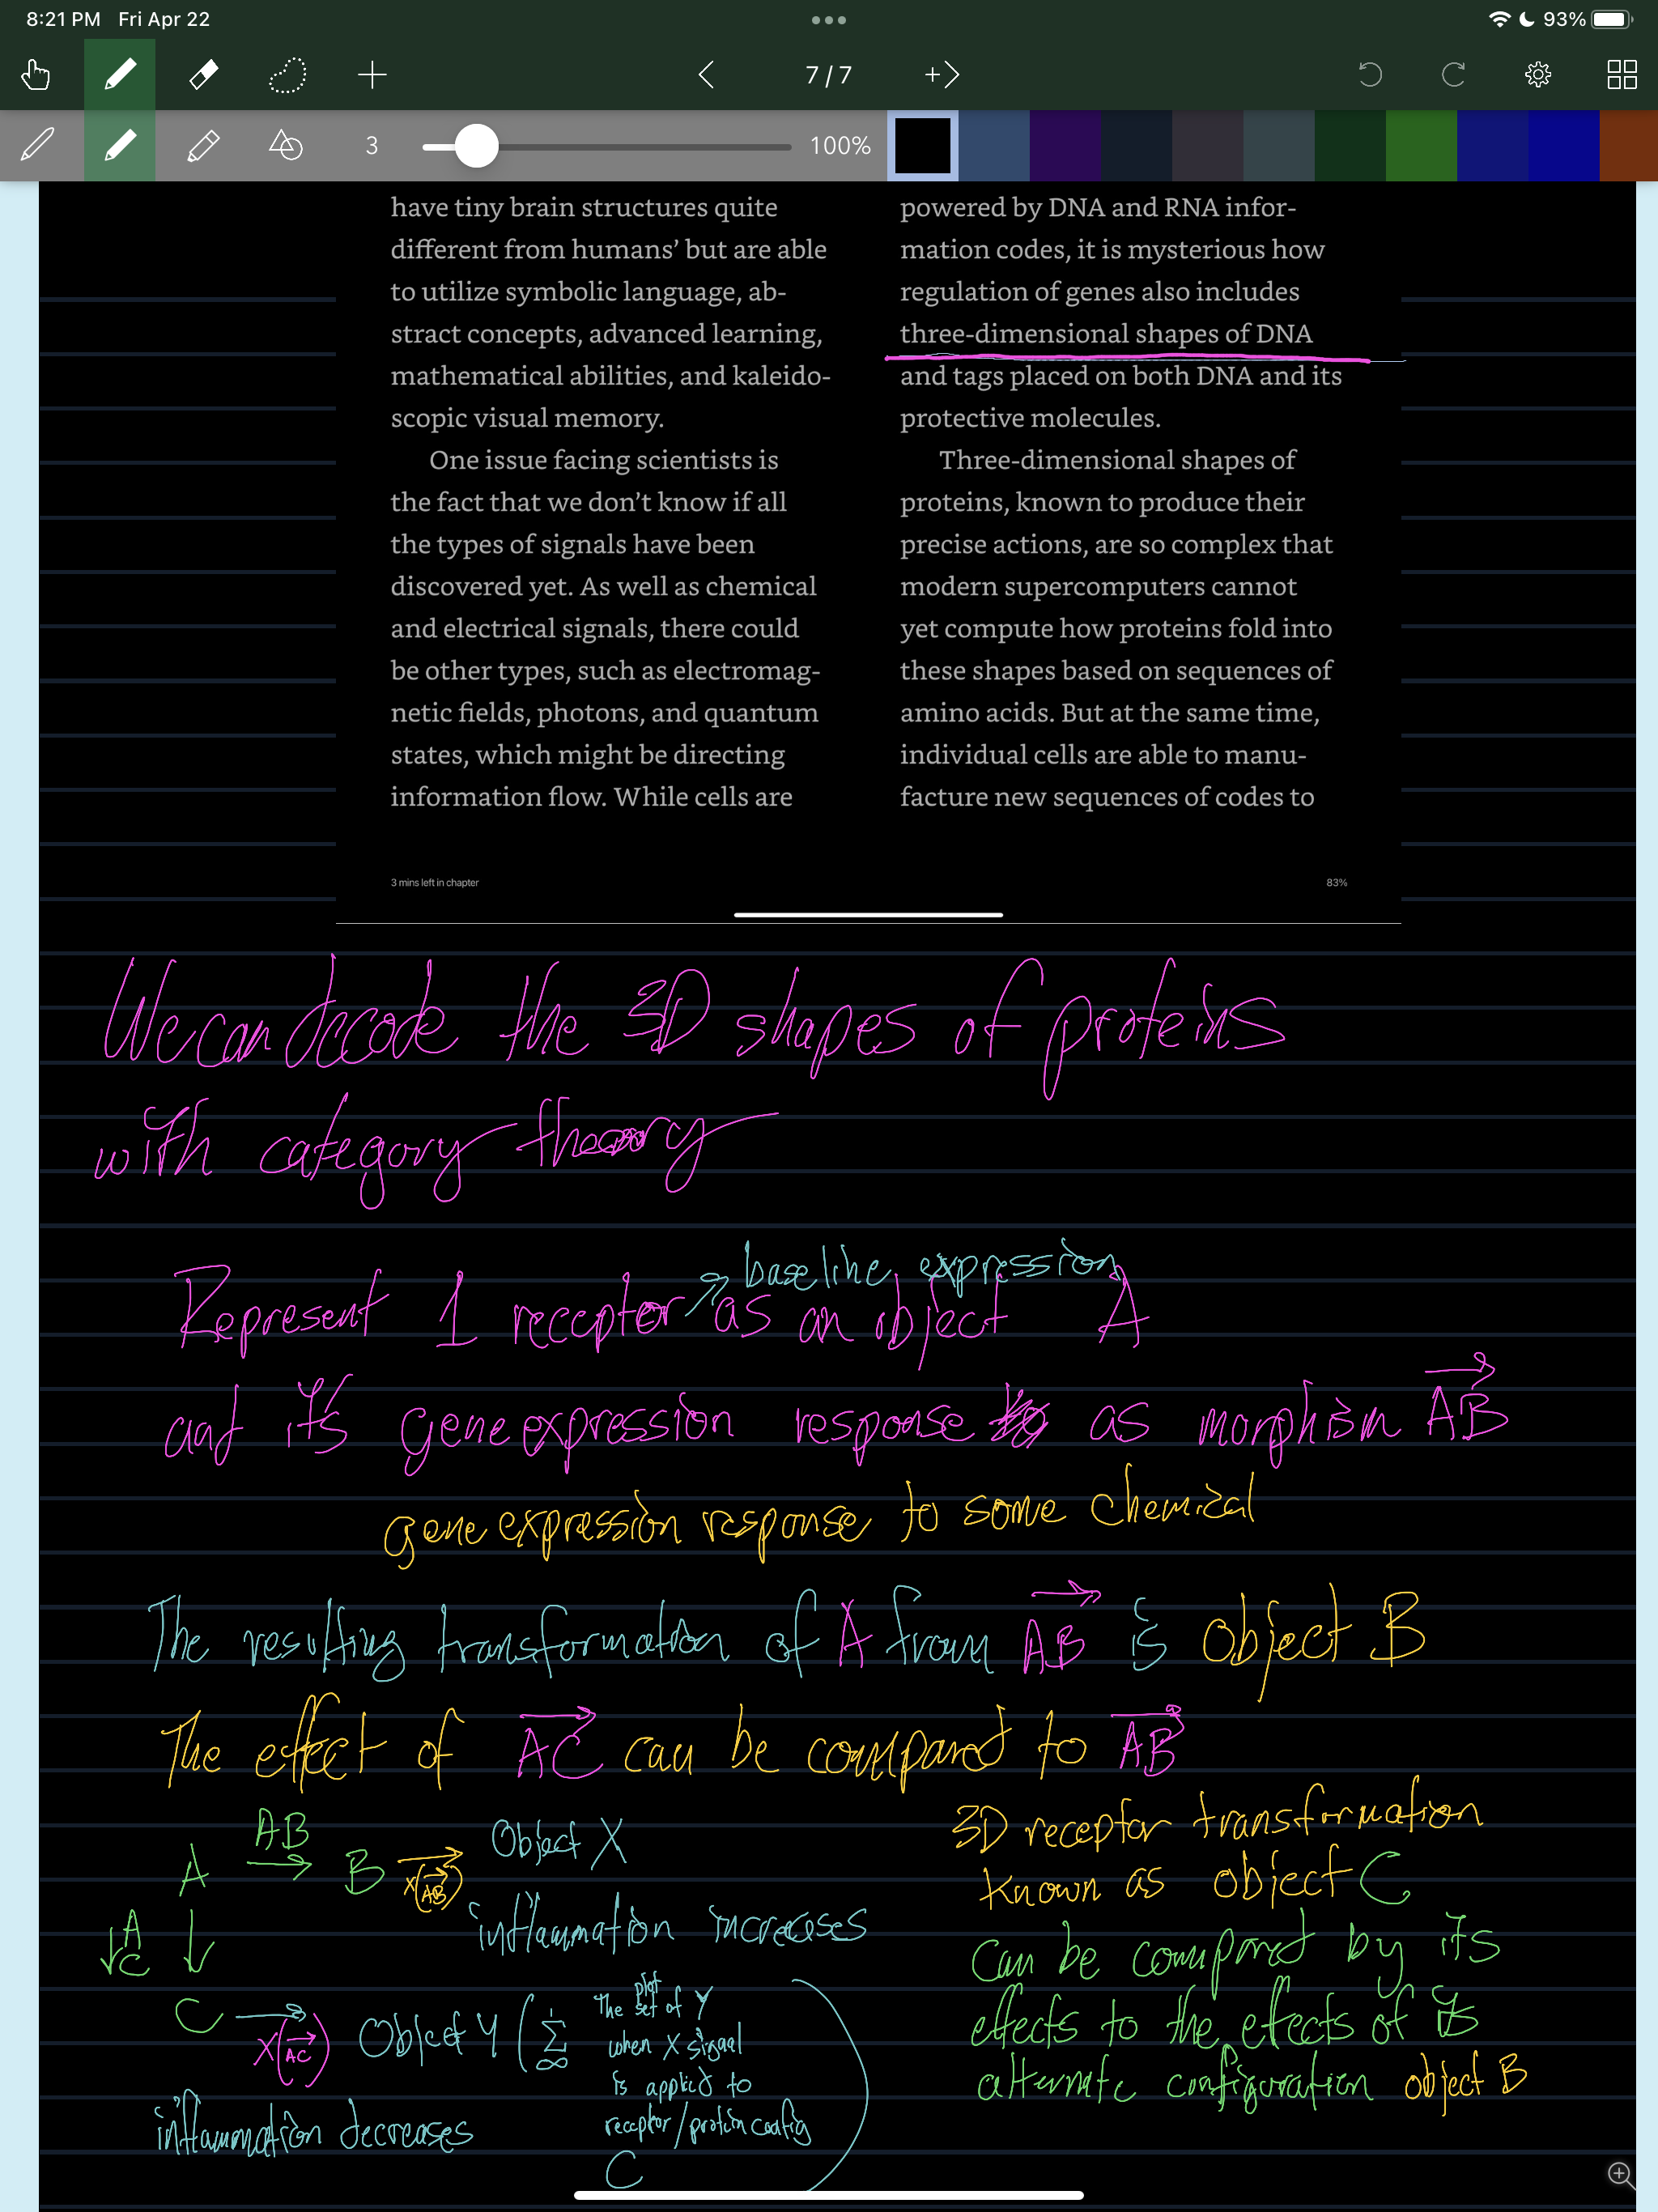 8:21 PM Fri Apr 22
93%
7/7
3
100%
have tiny brain structures quite
different from humans’ but are able
to utilize symbolic language, ab-
stract concepts, advanced learning,
mathematical abilities, and kaleido-
scopic visual memory.
One issue facing scientists is
the fact that we don’t know if all
the types of signals have been
discovered yet. As well as chemical
and electrical signals, there could
be other types, such as electromag-
netic fields, photons, and quantum
states, which might be directing
information flow. While cells are
powered by DNA and RNA infor-
mation codes, it is mysterious how
regulation of genes also includes
three-dimensional shapes of DNA
and tags placed on both DNA and its
protective molecules.
Three-dimensional shapes of
proteins, known to produce their
precise actions, are so complex that
modern supercomputers cannot
yet compute how proteins fold into
these shapes based on sequences of
amino acids. But at the same time,
individual cells are able to manu-
facture new sequences of codes to
3 mins left in chapter
83%
We can decode the 3D shapes of proteins
with category theory
baseline expression
Represent 1 receptor as an object A
and it's gene expression response as morphism AB
gene expression response to some chemical
The resulting transformation of A from AB is object B
The effect of AC can be compared to AB
AB
A → B X(AB) Object X
inflammation increases
AC ↓
C X(AC) Object Y ( Σ
∞
The plot set of Y
when X signal
is applied to
receptor/protein config
C )
inflammation decreases
3D receptor transformation
known as object C
can be compared by its
effects to the effects of its
alternate configuration object B